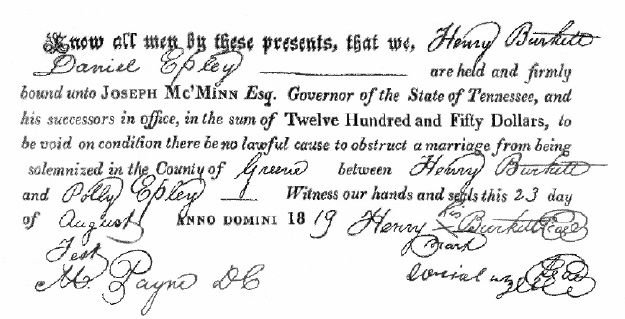 Know all men by these presents, that we, Henry Burkett
Daniel Epley are held and firmly
bound unto JOSEPH MC'MINN Esq. Governor of the State of Tennessee, and
his successors in office, in the sum of Twelve Hundred and Fifty Dollars, to
be void on condition there be no lawful cause to obstruct a marriage from being
solemnized in the County of Greene between Henry Burkett
and Polly Epley Witness our hands and seals this 23 day
of August ANNO DOMINI 1819 Henry his Burkett Seal
mark
Test
M. Payne DC